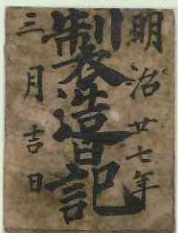 明治廿七年
製造日記
三月吉日